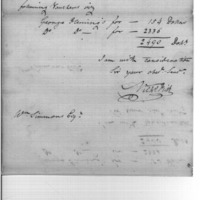 following Vouchers viz
George Fleming's for — 154 Dollars
Do Do for — 2336
2490 Dolls
I am with Consideration
Sir your obt Servt
Wm Simmons Esqr